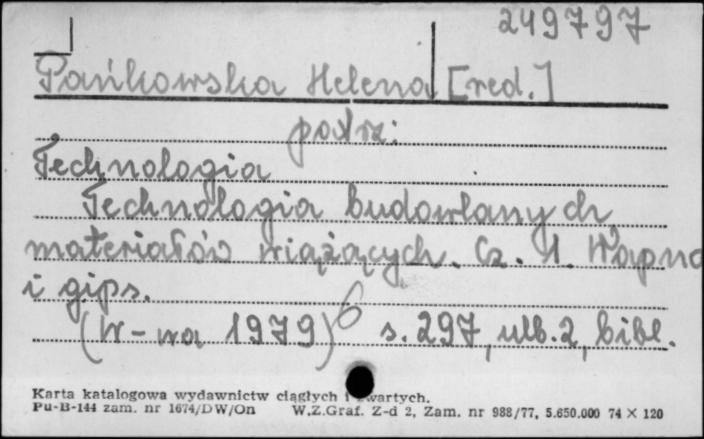 249797
Pańkowska Helena [red.]
patrz:
Technologia
Technologia budowlanych
materiałów wiążących. Cz. 1. Wapno
i gips.
(W-wa 1979) s. 297, ulb. 2, bibl.
Karta katalogowa wydawnictw ciągłych i zwartych.
Pu-B-144 zam. nr 1674/DW/On W.Z.Graf. Z-d 2, Zam. nr 988/77, 5.650.000 74 × 120